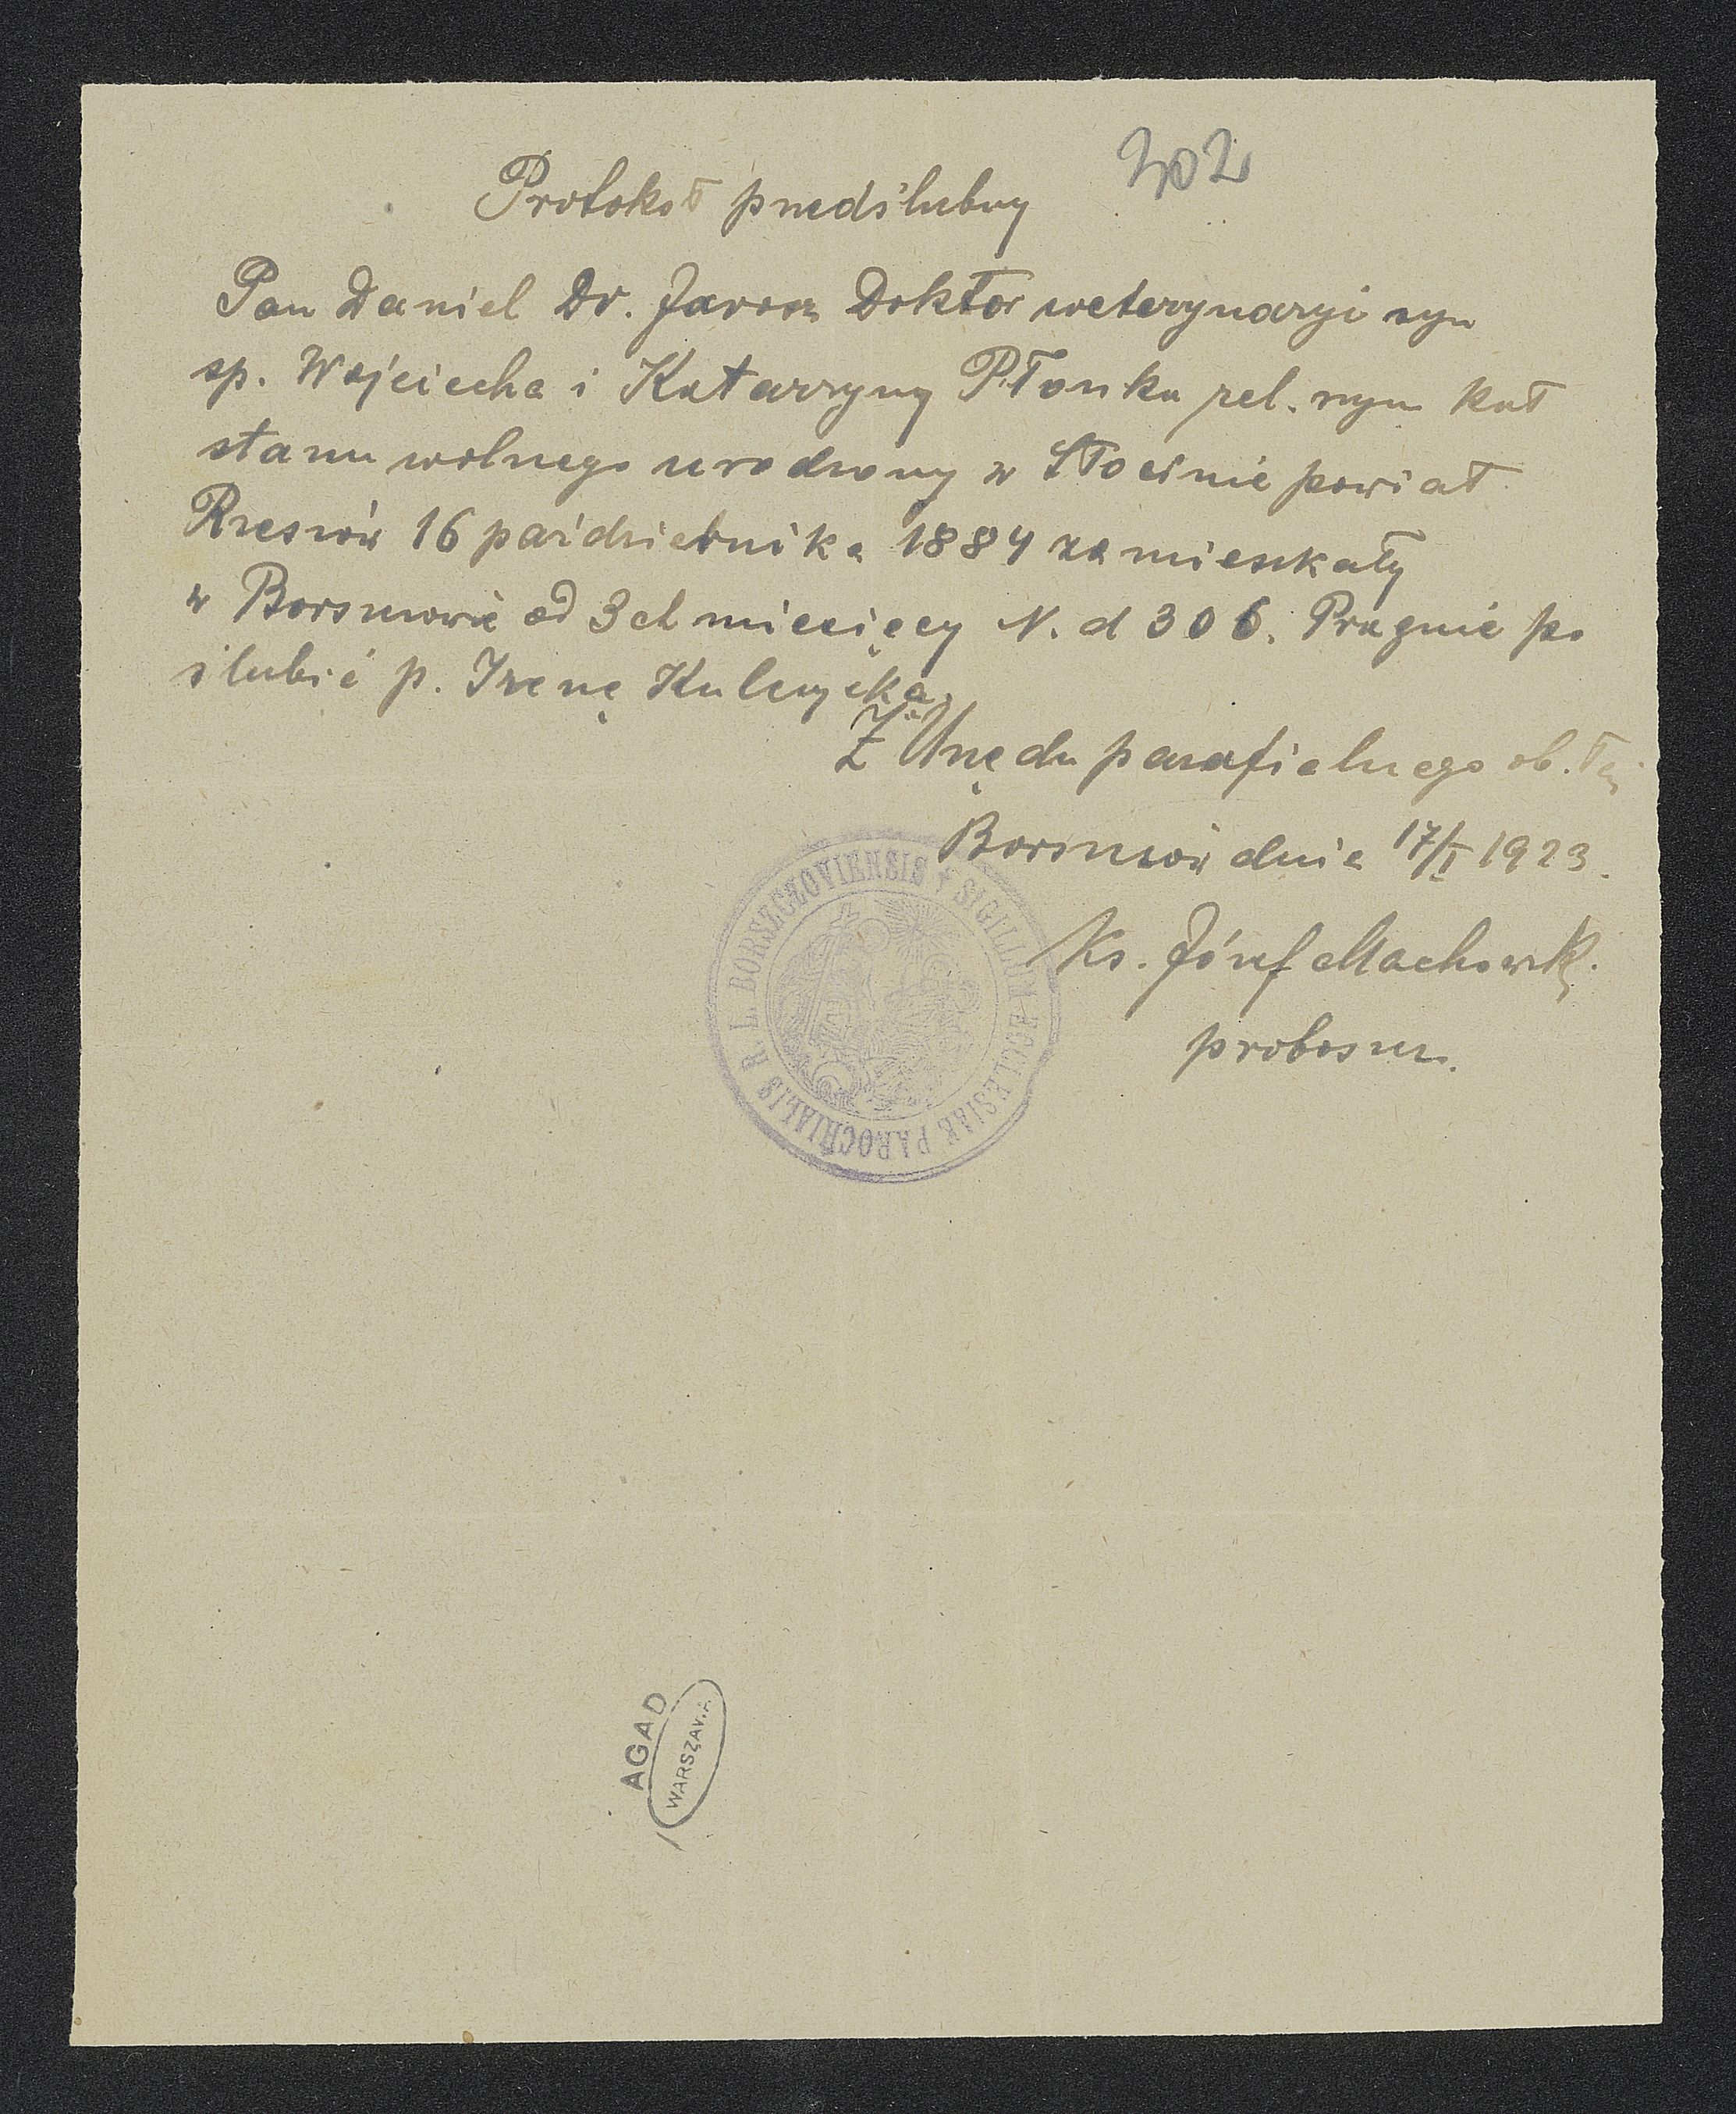 202
Protokoł przedślubny
Pan Daniel Dr. Jarosz Doktor weterynaryi syn
sp. Wojciecha i Katarzyny Płonka rel. rzym kat
stanu wolnego urodzony w Słocinie powiat
Rzeszów 16 października 1884 zamieszkały
w Borszczowie od 3ch miesięcy N. d 306. Pragnie po
ślubić p. Irenę Kulczycką.
Z Urzędu parafialnego ob. łać
Borszczów dnia 17/I 1923.
SIGILLUM ECCLESIAE PAROCHIALIS R. L. BORSZCZOVIENSIS
Ks. Józef Machowsk.
proboszcz.
AGAD
WARSZAWA